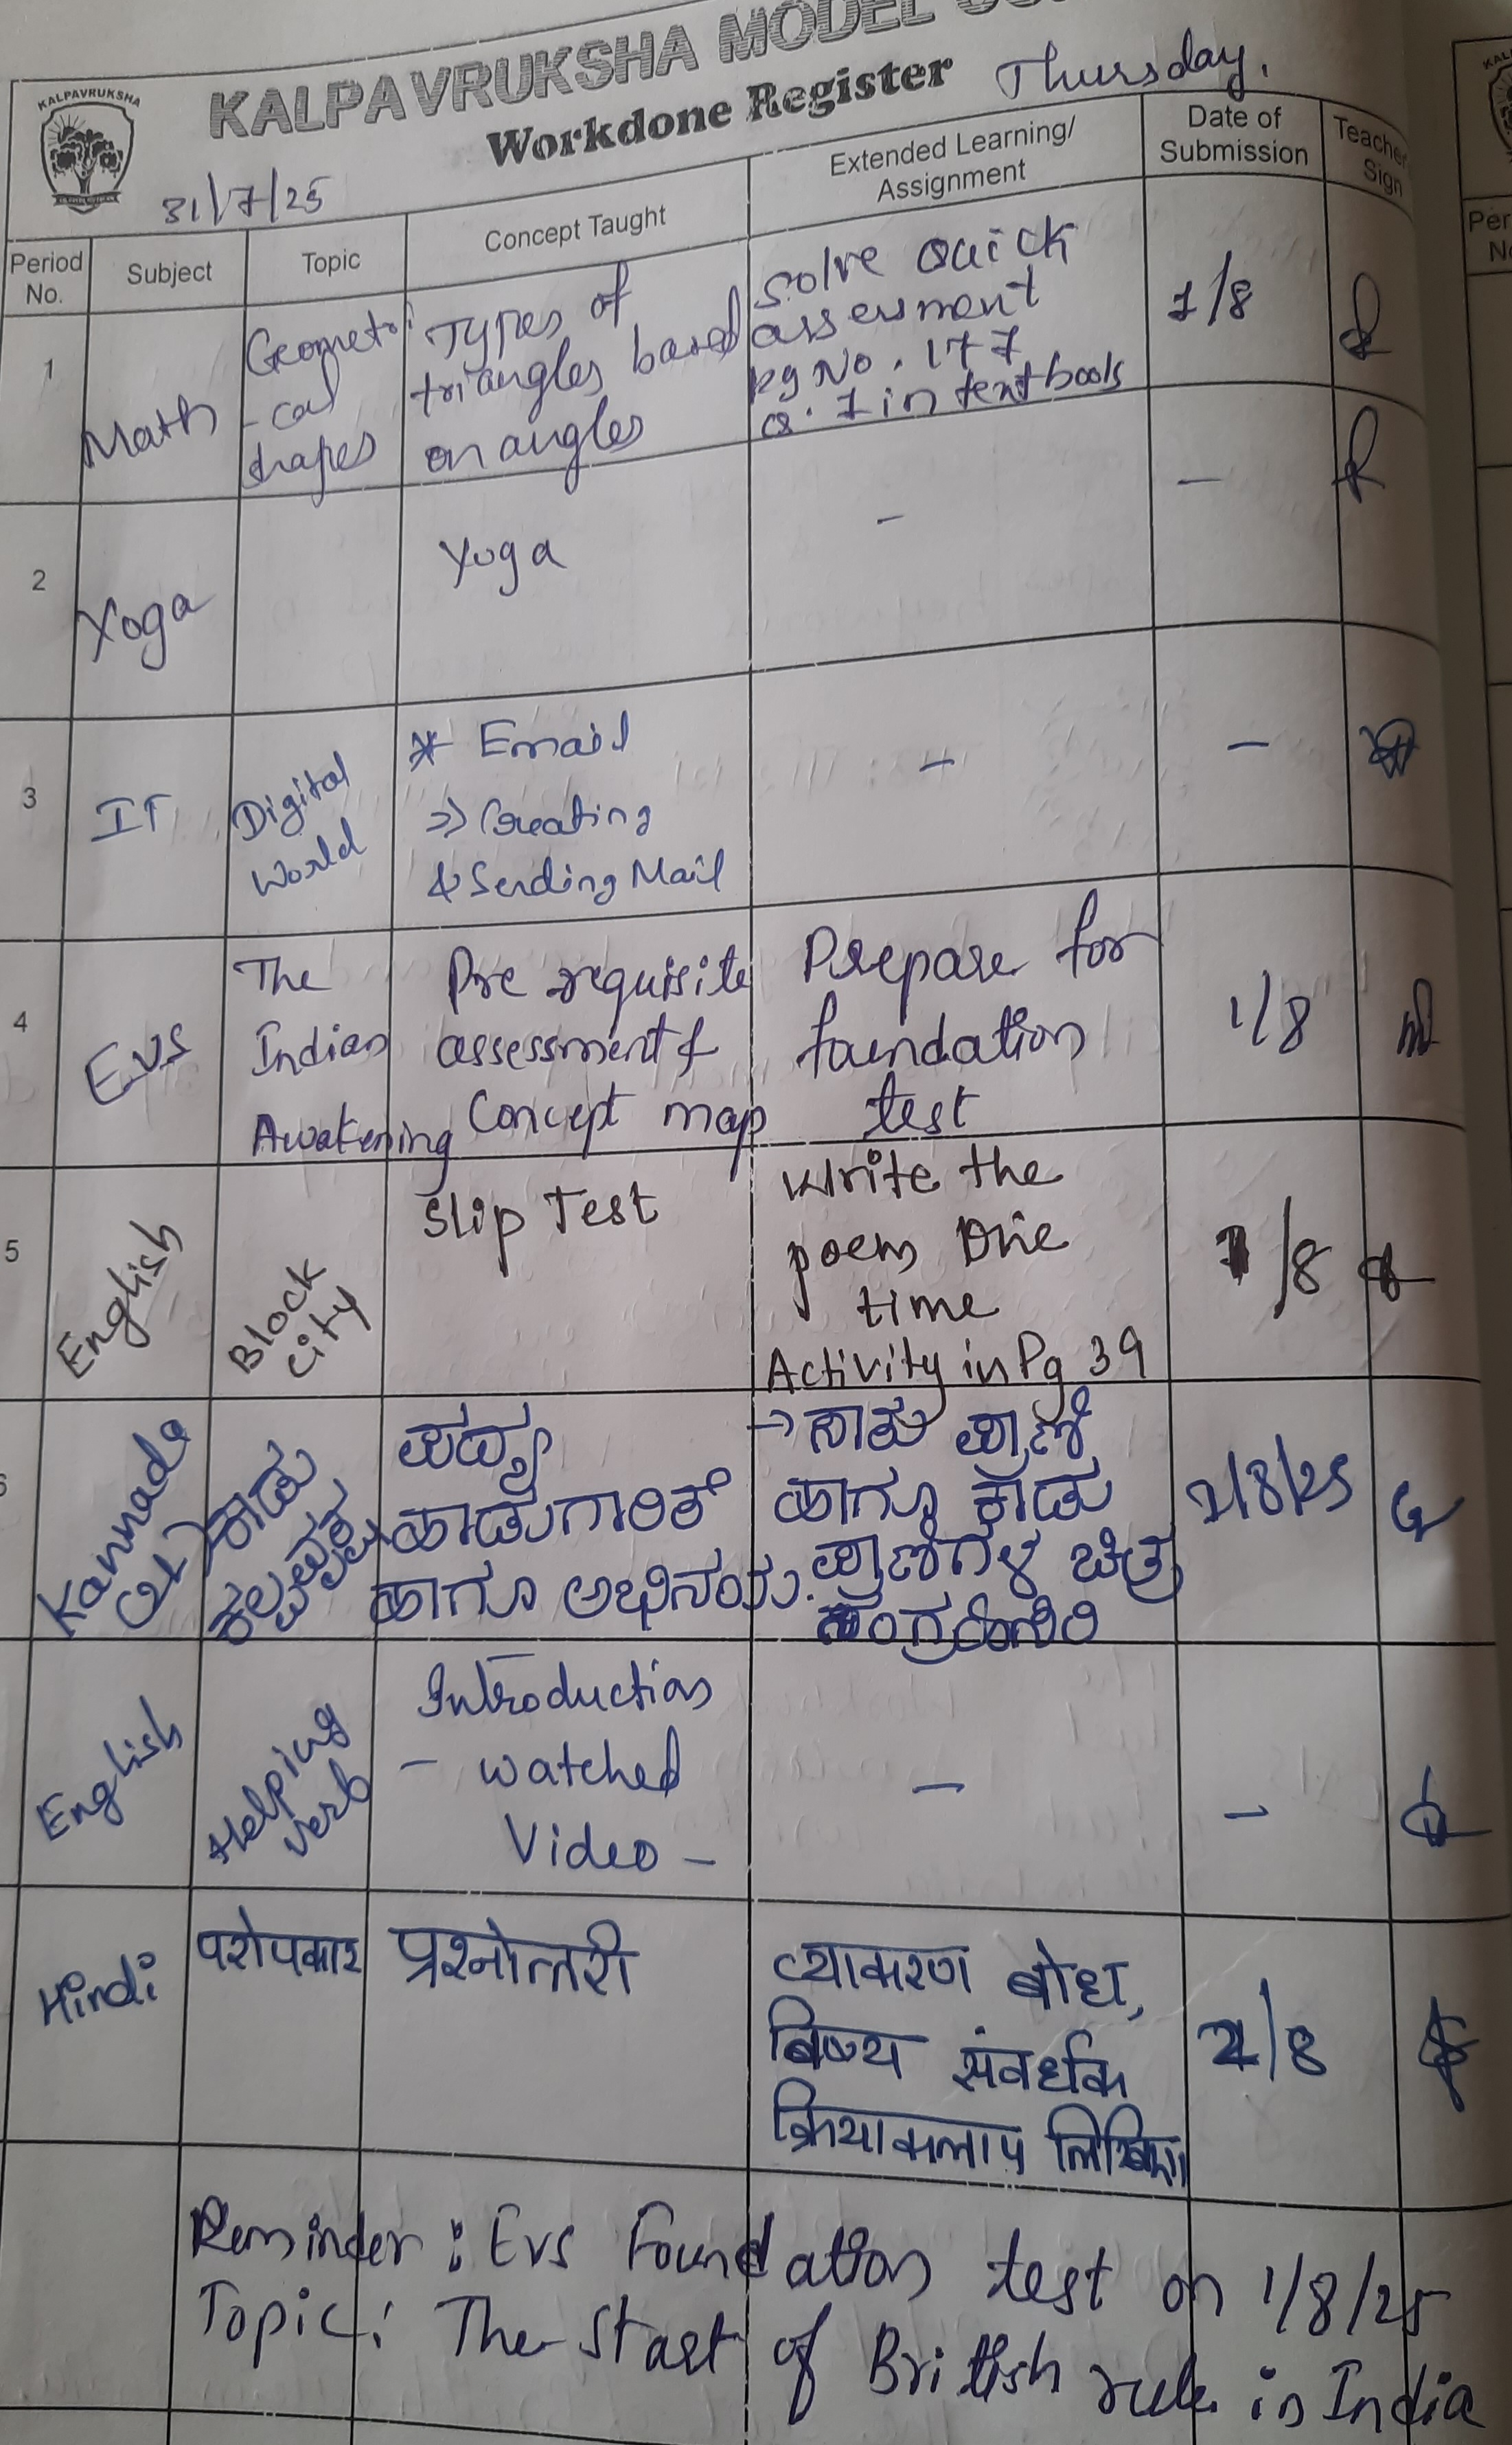 KALPAVRUKSHA MODEL
KALPAVRUKSHA
Workdone Register
Thursday.
31/7/25
Period No.
Subject
Topic
Concept Taught
Extended Learning/ Assignment
Date of Submission
Teacher Sign
1
Math
Geometri
-cal
shapes
Types of
triangles based
on angles
solve Quick
assessment
pg No. 177
Q. 1 in textbook
1/8
2
Yoga
Yoga
-
-
3
IT
Digital
World
* Email
=> Creating
& Sending Mail
-
-
4
EVS
The
Indian
Awakening
Pre requisite
assessment &
Concept map
Prepare for
foundation
test
1/8
5
English
Block
City
Slip Test
Write the
poem One
time
Activity in Pg 39
1/8
Kannada
ಕಾಡು
ಪದ್ಯ
ಹಾಡುಗಾರಿಕೆ
ಹಾಗೂ ಅಭಿನಯ.
→ ಸಾಕು ಪ್ರಾಣಿ
ಹಾಗೂ ಕಾಡು
ಪ್ರಾಣಿಗಳ ಚಿತ್ರ
ಸಂಗ್ರಹಿಸಿರಿ
1/8/25
English
Helping
verb
Introduction
- watched
Video -
-
-
Hindi
परोपकार
प्रश्नोत्तरी
व्याकरण बोध,
विषय संवर्धक
क्रियाकलाप लिखिए।
/8
Reminder : Evs Foundation test on 1/8/25
Topic : The Start of British rule in India